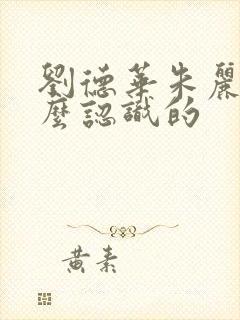 劉德華朱麗
麼認識的
黃素